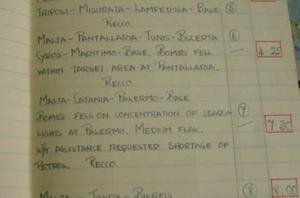 TRIPOLI - MISURATA - LAMPEDUSA - BASE (6)
RECCO.
MALTA - PANTALLARIA - TUNIS - BIZERTA (6)
CYROS - MARITIMO - BASE. BOMBS FELL
WITHIN TARGET AREA AT PANTALLARIA. 4.25
RECCO.
MALTA - CATANIA - PALERMO - BASE
BOMBS FELL ON CONCENTRATION OF SEARCH- (7)
LIGHTS AT PALERMO. MEDIUM FLAK. 7.30
W/T ASSISTANCE REQUESTED SHORTAGE OF
PETROL. RECCO.
(8) 8.00